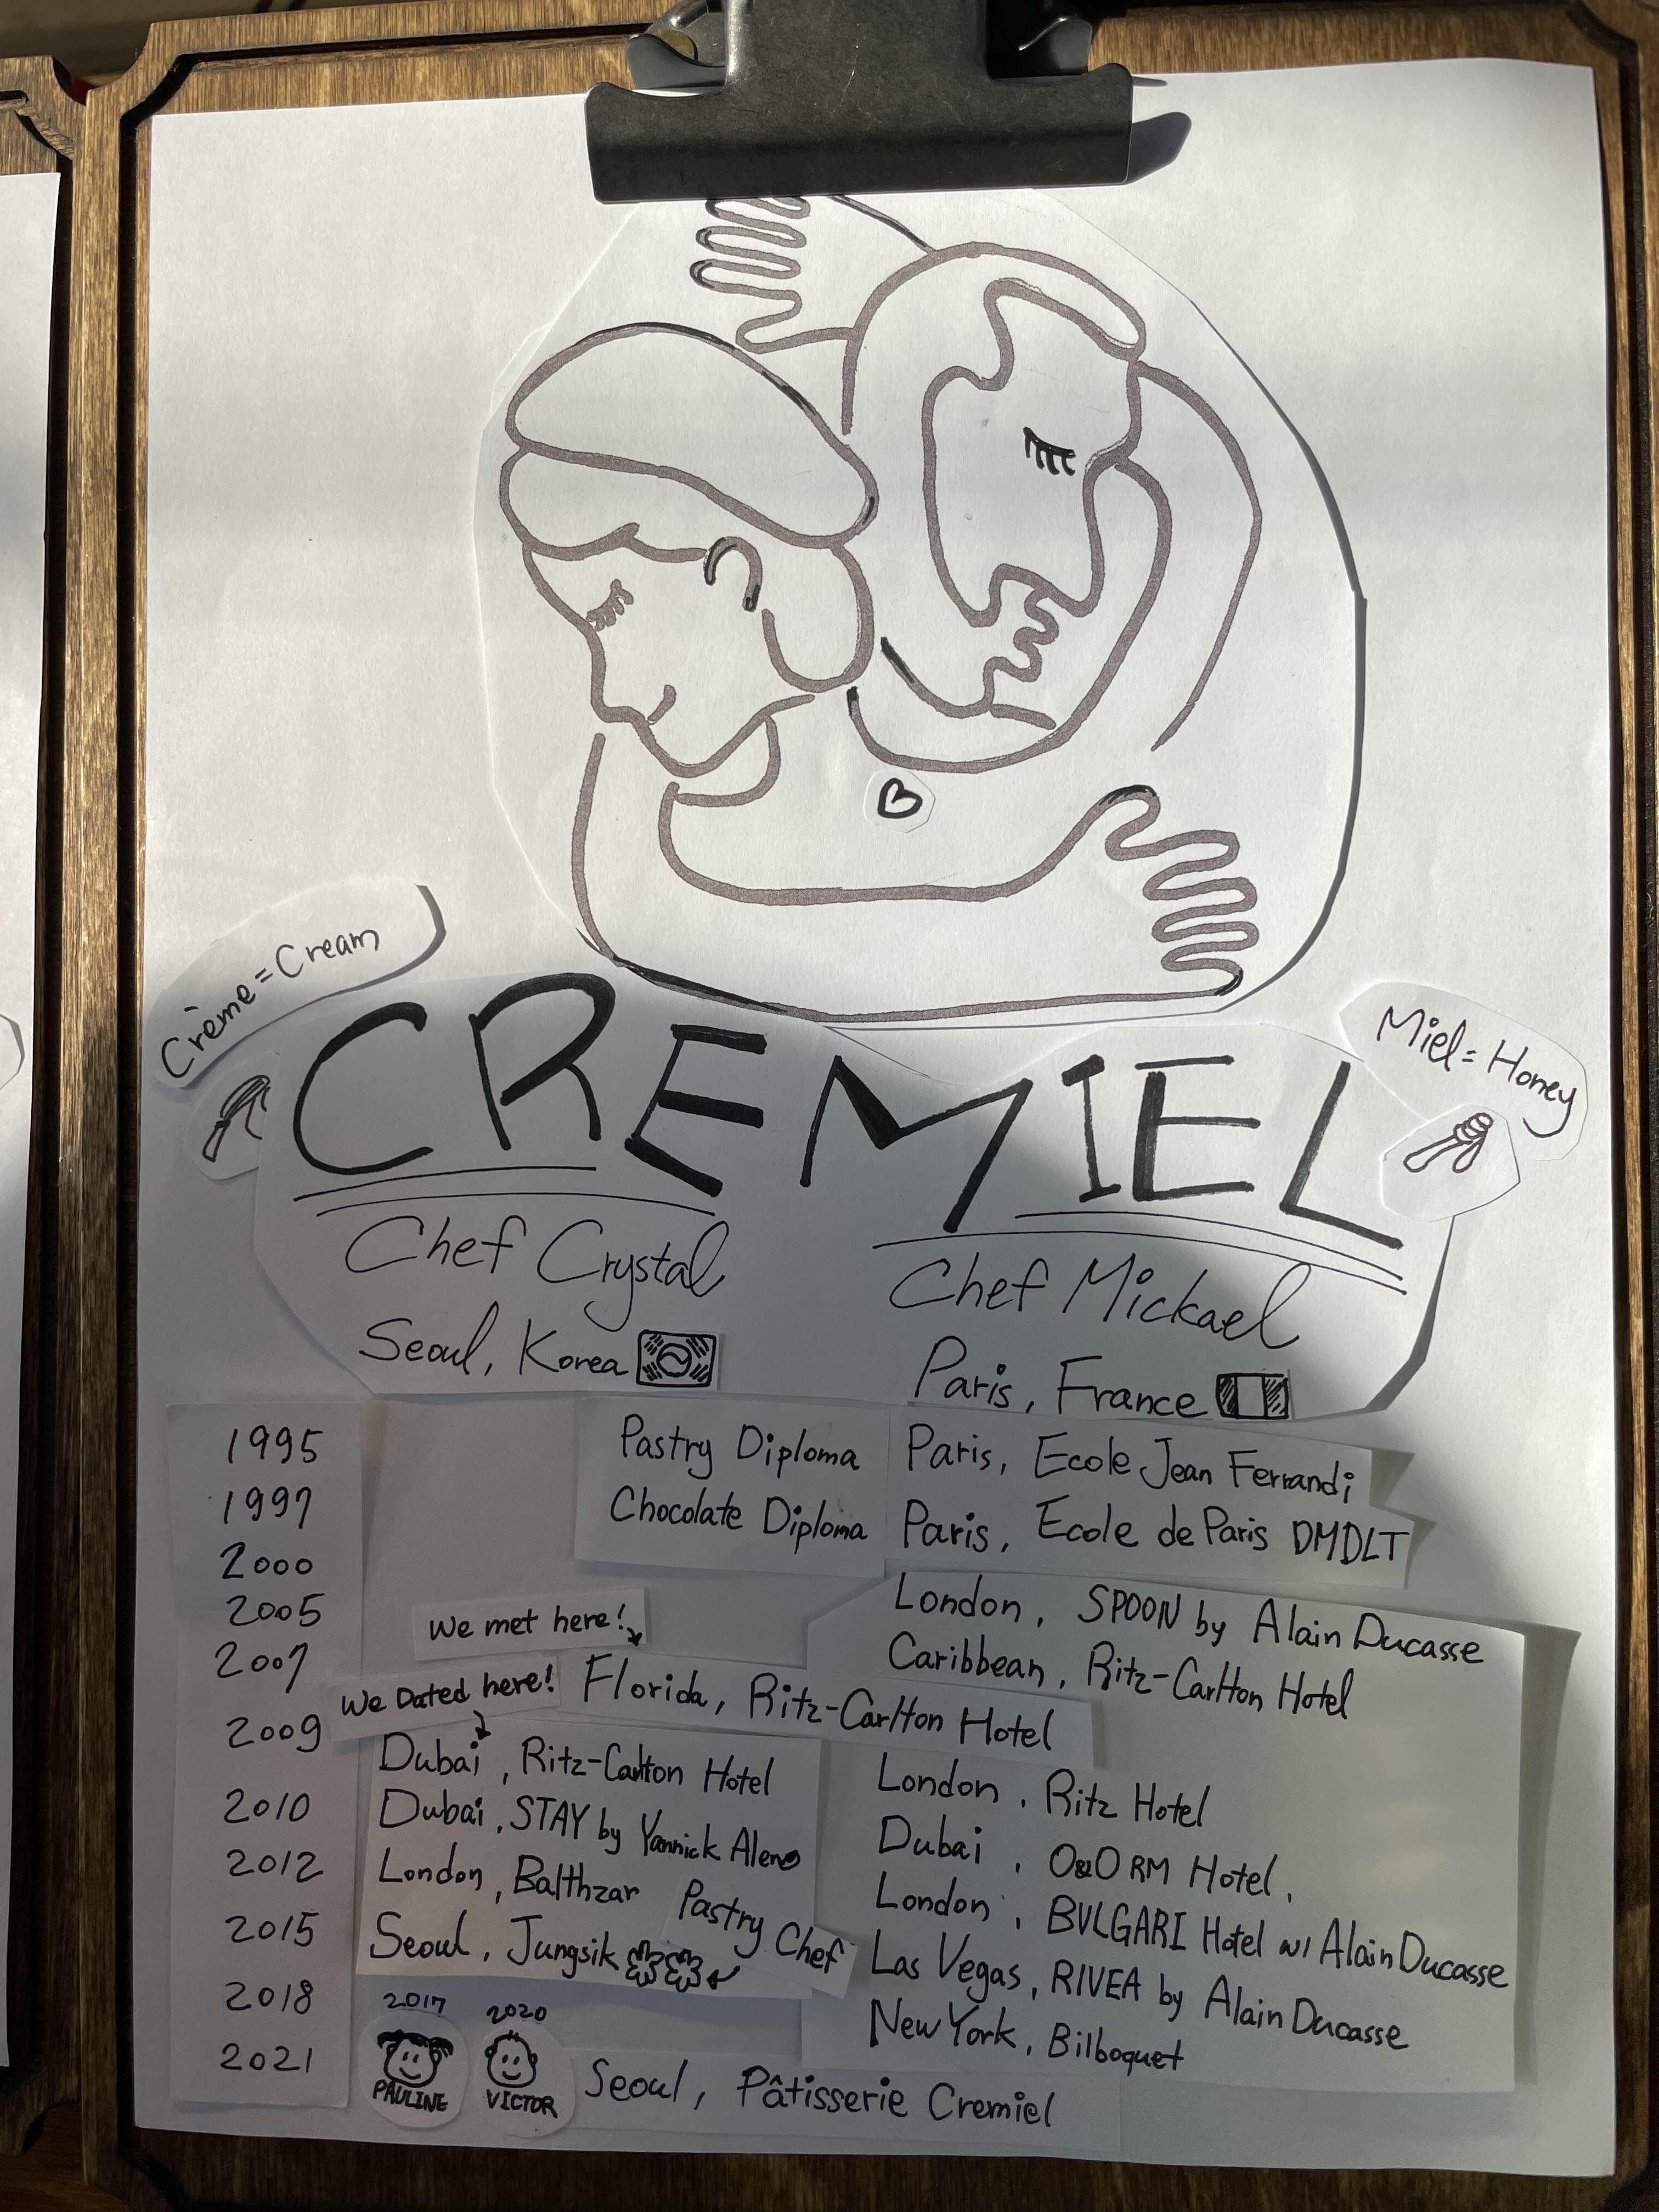 Crème = Cream
Miel = Honey
CREMIEL
Chef Crystal
Chef Mickael
Seoul, Korea
Paris, France
1995 Pastry Diploma Paris, Ecole Jean Ferrandi
1997 Chocolate Diploma Paris, Ecole de Paris DMDLT
2000 London, SPOON by Alain Ducasse
2005 Caribbean, Ritz-Carlton Hotel
We met here!
2007 Florida, Ritz-Carlton Hotel
We Dated here!
2009 Dubai, Ritz-Carlton Hotel London, Ritz Hotel
2010 Dubai, STAY by Yannick Aleno Dubai, O&O RM Hotel,
2012 London, Balthzar London, BVLGARI Hotel w/ Alain Ducasse
Pastry Chef
2015 Seoul, Jungsik Las Vegas, RIVEA by Alain Ducasse
2018 New York, Bilboquet
2017 2020
2021 Seoul, Pâtisserie Cremiel
PAULINE VICTOR